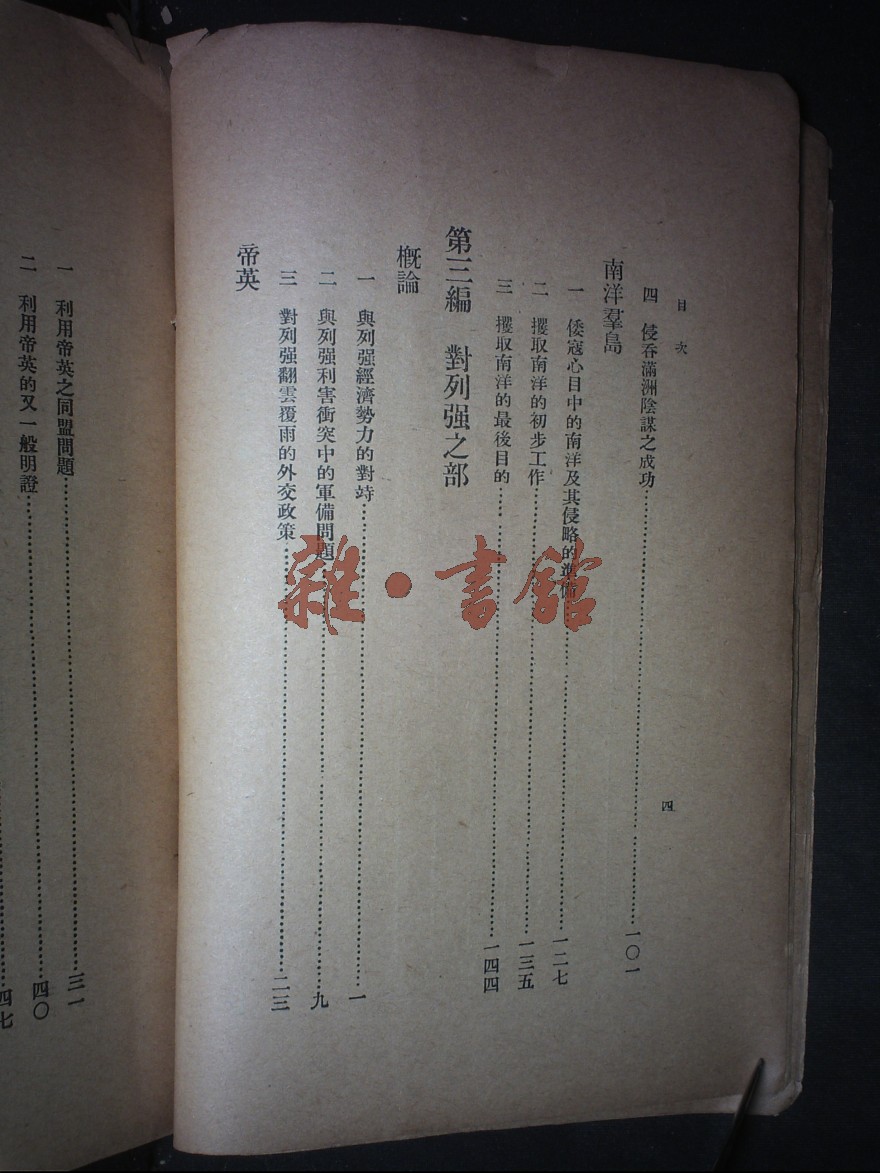 目次
四
四 侵吞滿洲陰謀之成功……一〇一
南洋羣島
一 倭寇心目中的南洋及其侵略的準備……一二七
二 攫取南洋的初步工作……一三五
三 攫取南洋的最後目的……一四四
第三編 對列强之部
概論
一 與列强經濟勢力的對峙……一
二 與列强利害衝突中的軍備問題……九
三 對列强翻雲覆雨的外交政策……二三
帝英
一 利用帝英之同盟問題……三一
二 利用帝英的又一般明證……四〇
……四七
雜·書館